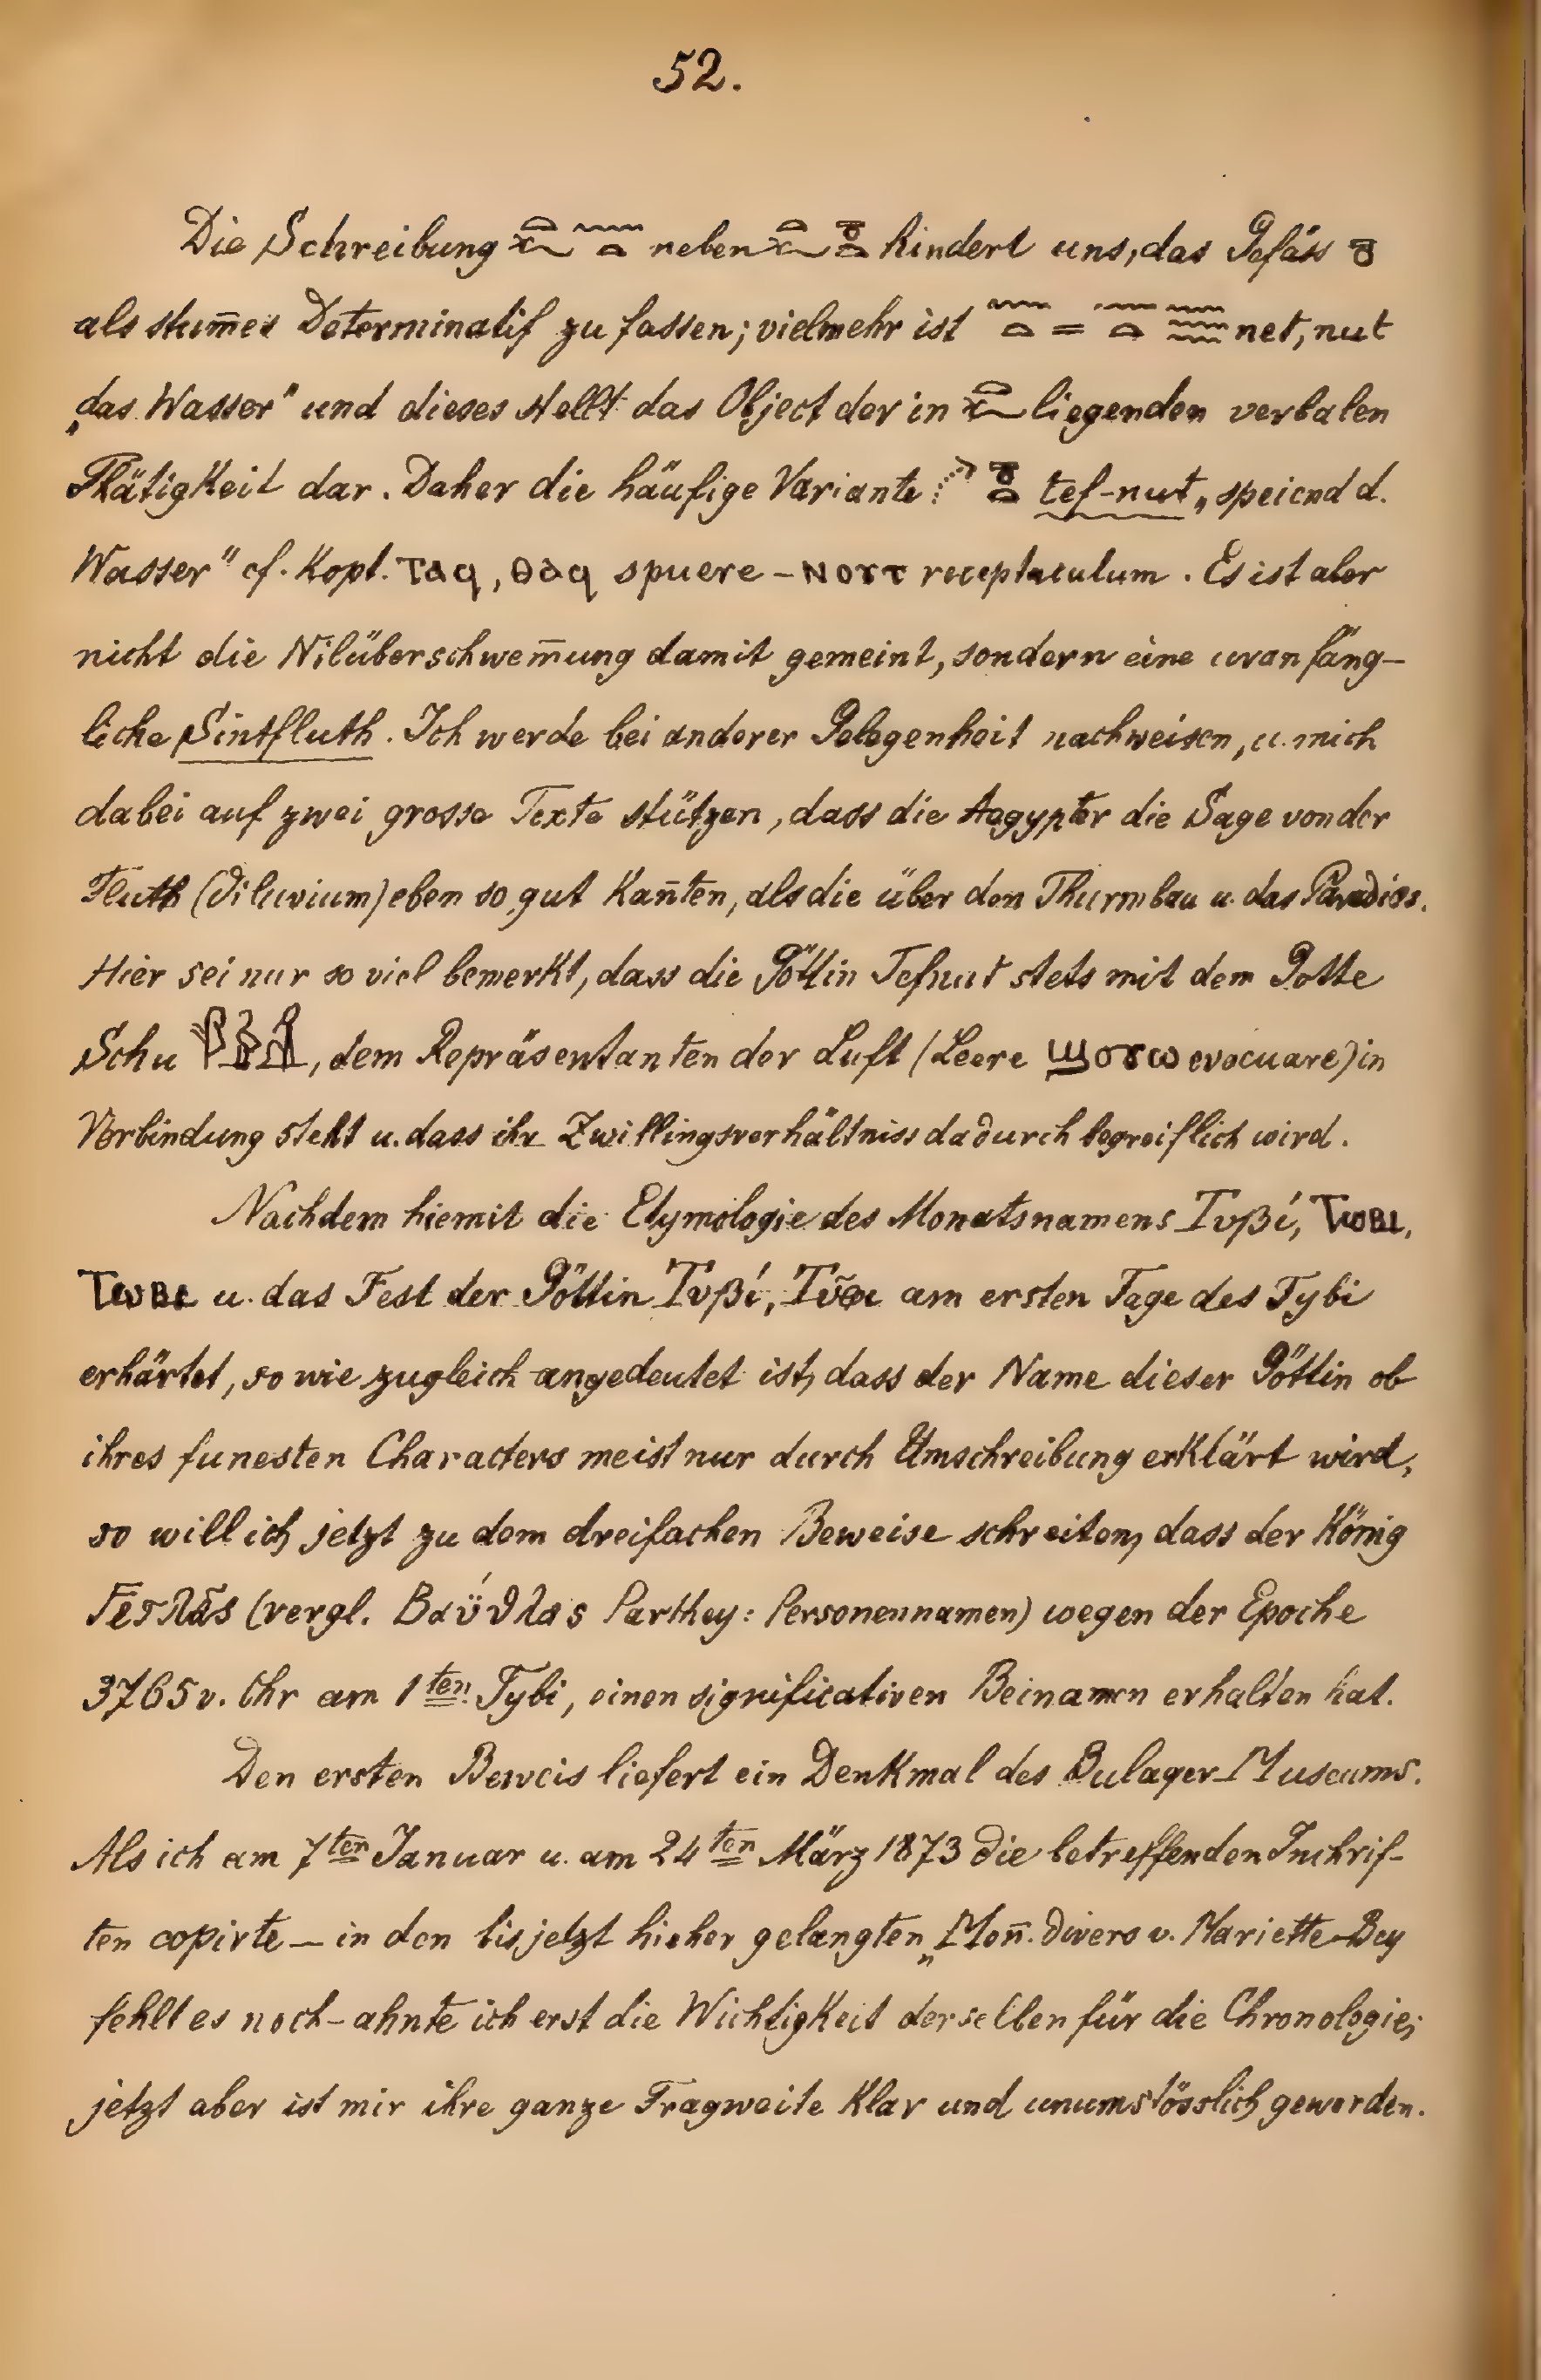 52.
Die Schreibung 𓏏𓆑 𓈖𓏏 neben 𓏏𓆑 𓏌𓏏 hindert uns, das Gefäss 𓏌
als stum̄es Determinatif zu fassen; vielmehr ist 𓈖𓏏 = 𓈖𓏏 𓈗 net, nut
„das Wasser" und dieses stellt das Object der in 𓏏𓆑 liegenden verbalen
Thätigkeit dar. Daher die häufige Variante 𓏌𓏏 tef-nut „speiend d.
Wasser" cf. Kopt. ⲧⲁϥ, ⲑⲁϥ spuere – ⲛⲟⲩⲧ receptaculum. Es ist aber
nicht die Nilüberschwem̄ung damit gemeint, sondern eine uranfäng-
liche Sintfluth. Ich werde bei anderer Gelegenheit nachweisen, u. mich
dabei auf zwei grosse Texte stützen, dass die Aegypter die Sage von der
Fluth (Diluvium) eben so gut kan̄ten, als die über den Thurmbau u. das Paradies.
Hier sei nur so viel bemerkt, dass die Göttin Tefnut stets mit dem Gotte
Schu 𓆄𓅱𓀭, dem Repräsentanten der Luft (Leere ϣⲟⲩⲱ evacuare) in
Verbindung steht u. dass ihr Zwillingsverhältniss dadurch begreiflich wird.
Nachdem hiemit die Etymologie des Monatsnamens Τυβί, ⲧⲱⲃⲓ,
ⲧⲱⲃⲉ u. das Fest der Göttin Τυβί, am ersten Tage des Tybi
erhärtet, so wie zugleich angedeutet ist, dass der Name dieser Göttin ob
ihres funesten Characters meist nur durch Umschreibung erklärt wird,
so will ich jetzt zu dem dreifachen Beweise schreiten, dass der König
(vergl. Parthey: Personennamen) wegen der Epoche
3765 v. Chr am 1ten Tybi, einen significativen Beinamen erhalten hat.
Den ersten Beweis liefert ein Denkmal des Bulaqer Museums.
Als ich am 7ten Januar u. am 24ten März 1873 die betreffenden Inchrif-
ten copirte – in den bis jetzt hieher gelangten „Mon̄. divers v. Mariette-Bey
fehlt es noch – ahnte ich erst die Wichtigkeit derselben für die Chronologie;
jetzt aber ist mir ihre ganze Tragweite klar und unumstösslich geworden.